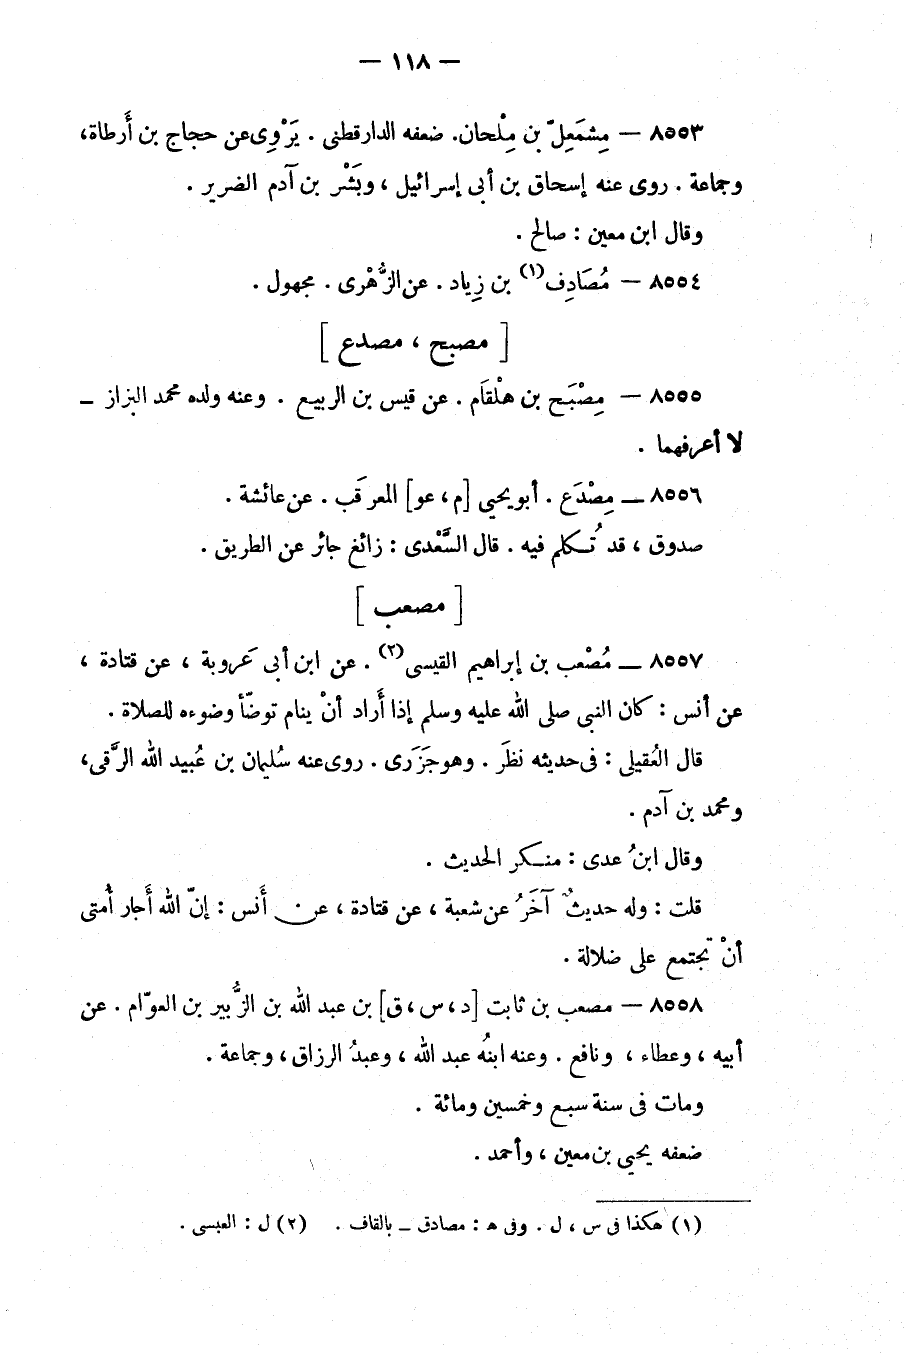 — ١١٨ —
٨٥٥٣ — مِشمَعِلّ بن مِلْحان. ضعفه الدارقطنى . يَرْوِى عن حجاج بن أَرطاة،
وجماعة . روى عنه إسحاق بن أبى إسرائيل ، وبَشْر بن آدم الضرير .
وقال ابن معين : صالح .
٨٥٥٤ — مُصَادِف(١) بن زِياد . عن الزُّهْرى . مجهول .
[ مصبح ، مصدع ]
٨٥٥٥ — مِصْبَح بن هلْقَام . عن قيس بن الربيع . وعنه ولده محمد البزاز ــ
لا أعرفهما .
٨٥٥٦ — مِصْدَع . أبو يحيى [م، عو] المعرقَب . عن عائشة .
صدوق ، قد تُكلم فيه . قال السَّعْدى : زائغ جائر عن الطريق .
[ مصعب ]
٨٥٥٧ — مُصْعب بن إبراهيم القيسى(٢) . عن ابن أبى عَروبة ، عن قتادة ،
عن أنس : كان النبى صلى الله عليه وسلم إذا أَراد أنْ ينام توضّأ وضوءه للصلاة .
قال العُقيلى : فى حديثه نظَر . وهو جَزَرى . روى عنه سُليمان بن عُبيد الله الرَّقى،
ومحمد بن آدم .
وقال ابنُ عدى : منكر الحديث .
قلت : وله حديثٌ آخَرُ عن شعبة ، عن قتادة ، عن أَنس : إنّ الله أَجار أُمتى
أنْ تجتمع على ضلالة .
٨٥٥٨ — مصعب بن ثابت [د، س، ق] بن عبد الله بن الزُّبير بن العوّام . عن
أبيه ، وعطاء ، ونافع . وعنه ابنُه عبد الله ، وعبدُ الرزاق ، وجماعة .
ومات فى سنة سبع وخمسين ومائة .
ضعفه يحيى بن معين ، وأحمد .
(١) هكذا فى س ، ل . وفى ه : مصادق ــ بالقاف . (٢) ل : العبسى .